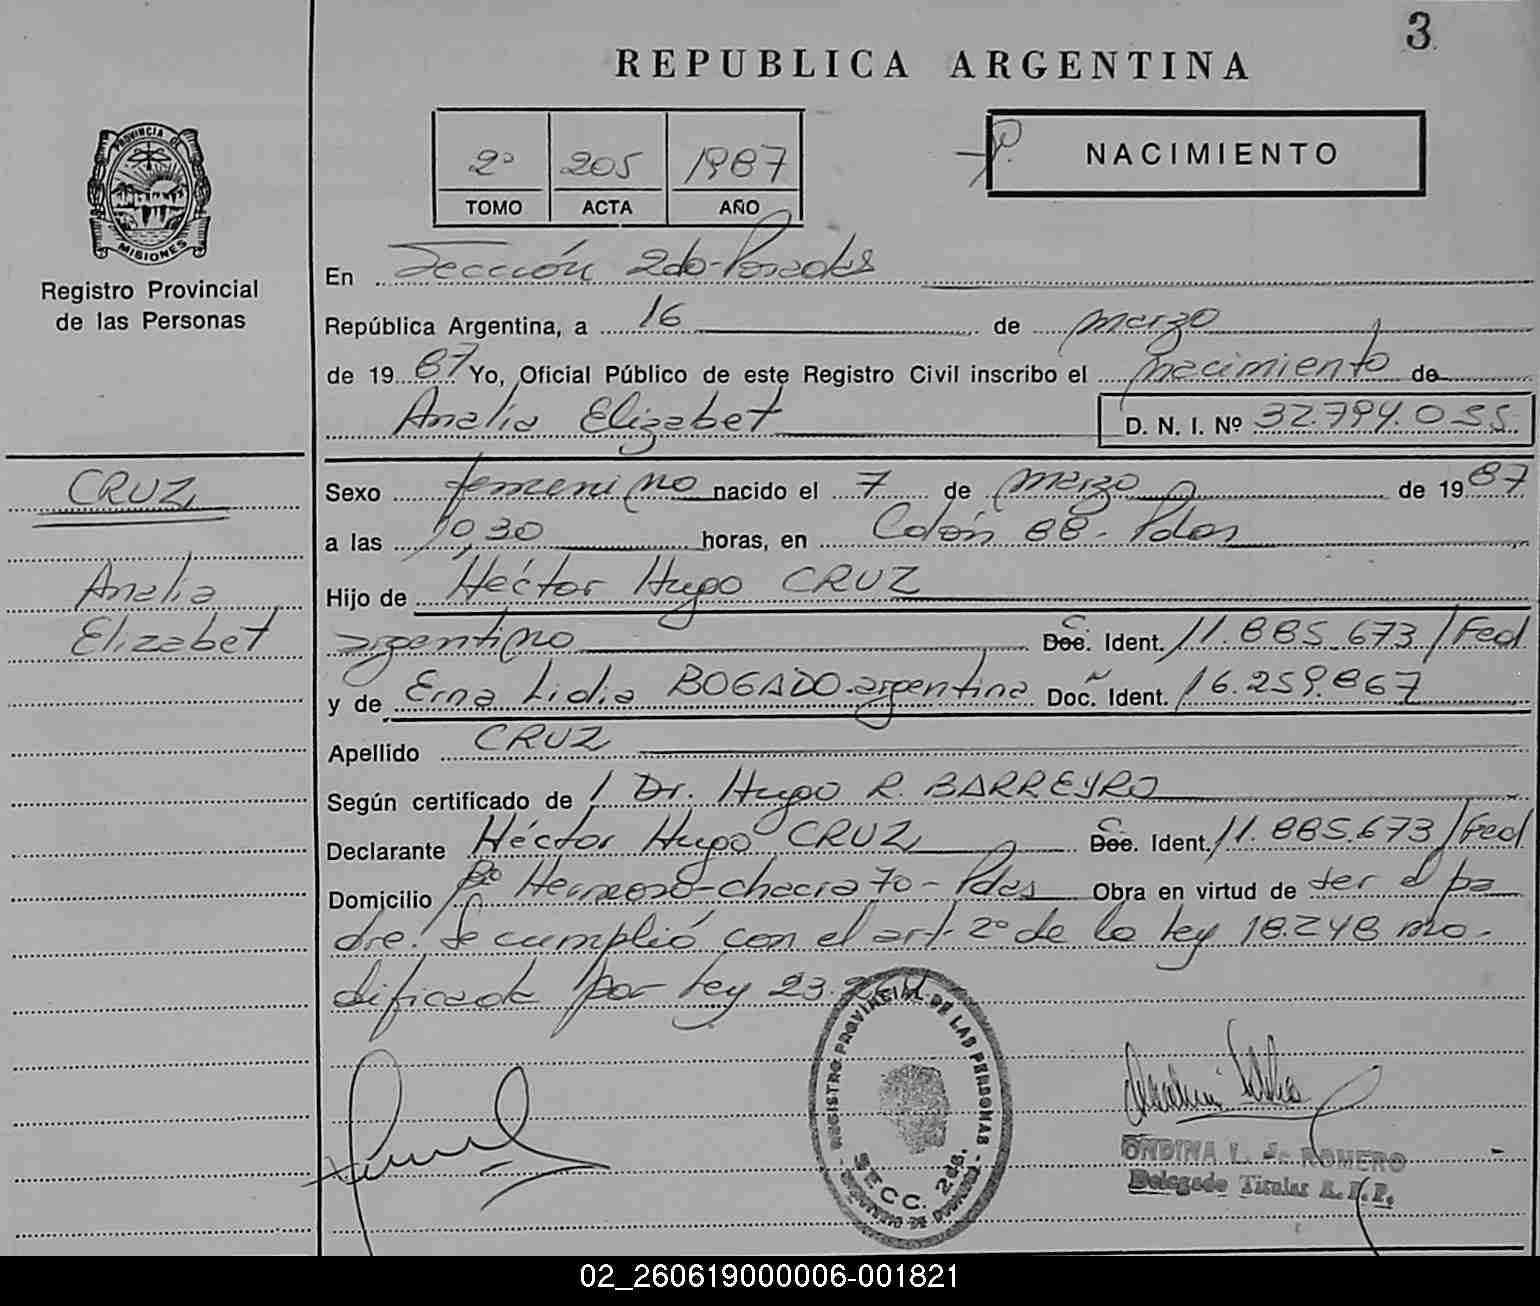 3
REPUBLICA ARGENTINA
2º 205 1987
TOMO ACTA AÑO
NACIMIENTO
PROVINCIA DE MISIONES
Registro Provincial
de las Personas
En Sección 2da-Posadas
República Argentina, a 16 de marzo
de 1987 Yo, Oficial Público de este Registro Civil inscribo el nacimiento de
Analia Elizabet D. N. I. Nº 32.794.055
CRUZ
Analia
Elizabet
Sexo femenino nacido el 7 de marzo de 1987
a las 1030 horas, en Colón 88- Pdas
Hijo de Héctor Hugo CRUZ
argentino Doc. Ident. 11.885.673/Fed
y de Erna Lidia BOGADO-argentina Doc. Ident. 16.259.867
Apellido CRUZ
Según certificado de Dr. Hugo R. BARREYRO
Declarante Héctor Hugo CRUZ Doc. Ident. 11.885.673/Fed
Domicilio Bº Hermoso-chacra 70-Pdas Obra en virtud de ser el pa
dre. Se cumplió con el art. 2º de la ley 18.248 mo-
dificada por ley
REGISTRO PROVINCIAL DE LAS PERSONAS
SECC. 2da.
ONDINA L. de ROMERO
Delegado Titular R. P. P.
02_260619000006-001821